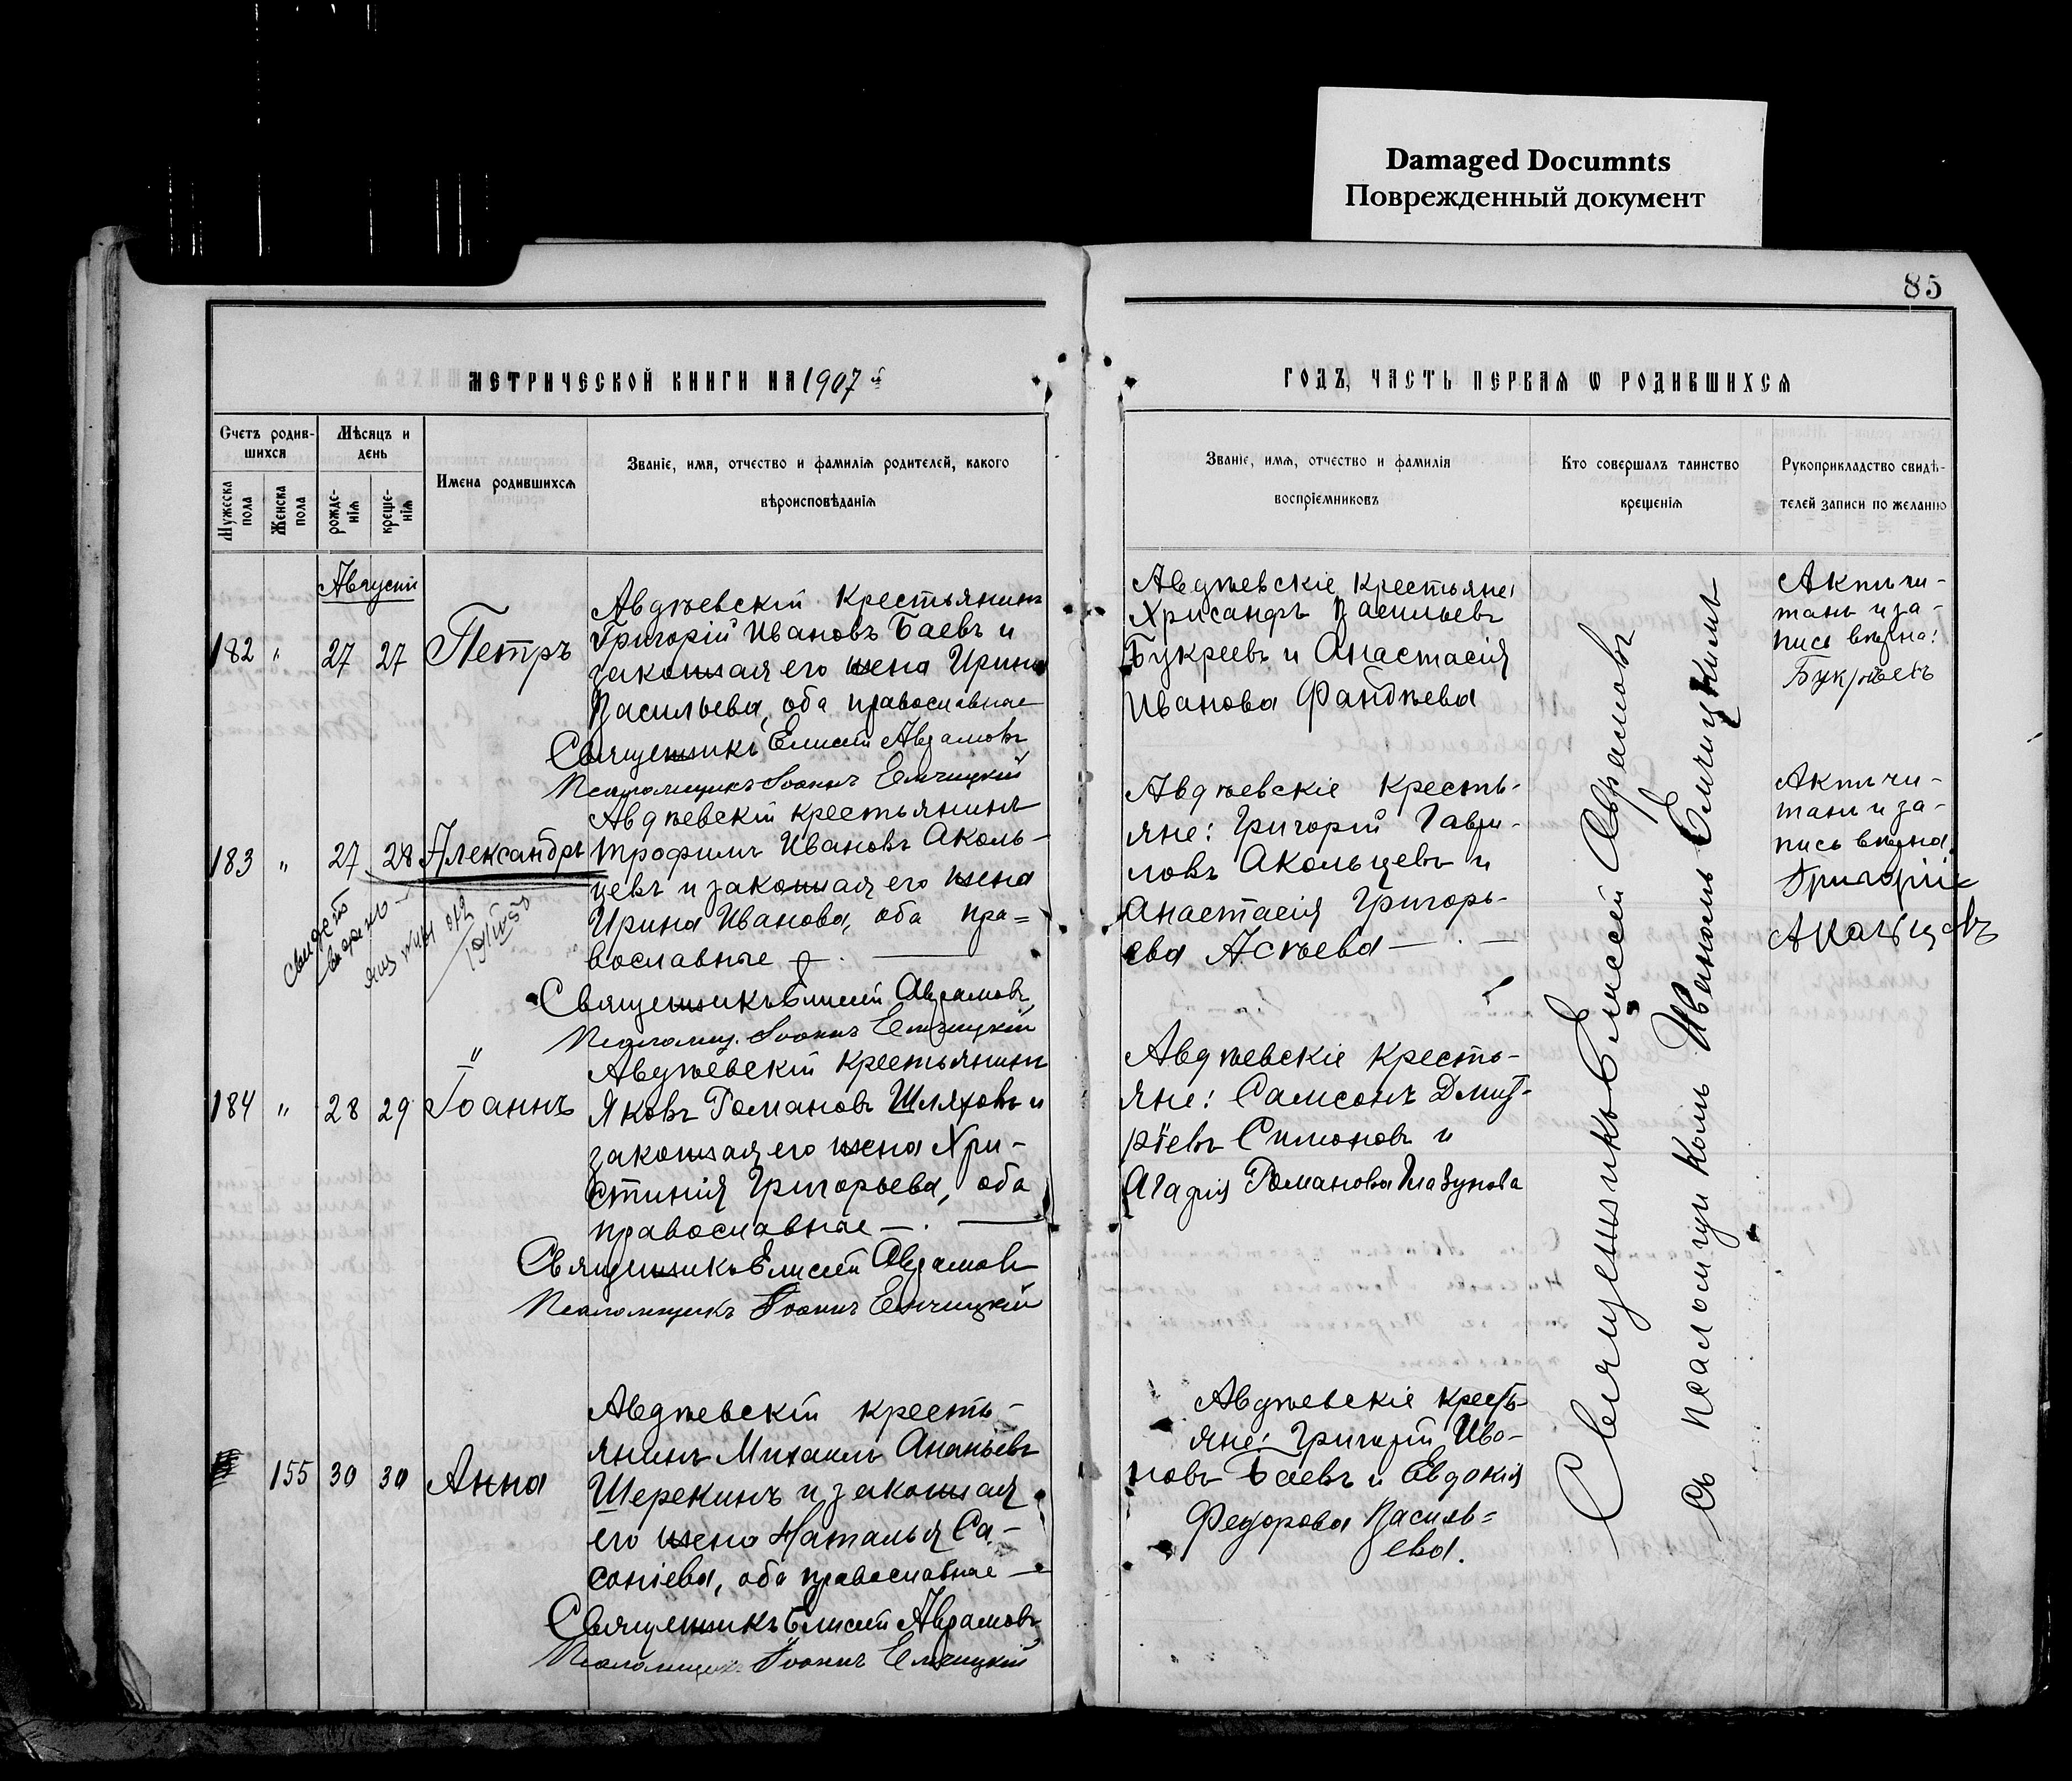 Damaged Documnts
Поврежденный документ
85
МЕТРИЧЕСКОЙ КНИГИ НА 1907 й
ГОДЪ, ЧАСТЬ ПЕРВАЯ Ѡ РОДИВШИХСЯ
Счетъ родив-
шихся
Мужеска пола
Женска пола
Мѣсяцъ и
день
рожде-
нія
креще-
нія
Имена родившихся
Званіе, имя, отчество и фамилія родителей, какого
вѣроисповѣданія
Званіе, имя, отчество и фамилія
воспріемниковъ
Кто совершалъ таинство
крещенія
Рукоприкладство свидѣ-
телей записи по желанію
Августъ
182 " 27 27 Петръ
Авдѣевскій крестьянинъ
Григорій Ивановъ Баевъ и
законная его жена Ирина
Васильева, оба православные
Священникъ Елисей Авраамовъ
Псаломщикъ Іоаннъ Емчицкій
Авдѣевскіе крестьяне:
Хрисанфъ Васильевъ
Букреевъ и Анастасія
Иванова Фандѣева
Актъ чи-
танъ и за-
пись вѣрна:
Букрѣевъ
183 " 27 28 Александръ
Авдѣевскій крестьянинъ
Трофимъ Ивановъ Аколь-
цевъ и законная его жена
Ирина Иванова, оба пра=
вославные
Священникъ Елисей Авраамовъ
Псаломщ. Іоаннъ Емчицкій
Авдѣевскіе кресть-
яне: Григорій Гаври-
ловъ Акольцевъ и
Анастасія Григорь-
ева Асѣева
Актъ чи-
танъ и за-
пись вѣрна.
Григорій
Аколъцовъ
184 " 28 29 Іоаннъ
Авдѣевскій крестьянинъ
Яковъ Романовъ Шляховъ и
законная его жена Хри-
стинія Григорьева, оба
православные
Священникъ Елисей Авраамовъ
Псаломщикъ Іоаннъ Емчицкій
Авдѣевскіе кресть-
яне: Самсонъ Дмит-
ріевъ Симоновъ и
Агафія Романова Глазунова
155 30 30 Анна
Авдѣевскій кресть-
янинъ Михаилъ Ананьевъ
Шерекинъ и законная
его жена Наталья Са-
соніева, оба православные
Священникъ Елисей Авраамовъ
Псаломщикъ Іоаннъ Емчицкій
Авдѣевскіе кресть-
яне: Григорій Ива-
новъ Баевъ и Евдокія
Федорова Василь=
ева.
Священникъ Елисей Авраамовъ
съ псаломщикомъ Иваномъ Емчицкимъ